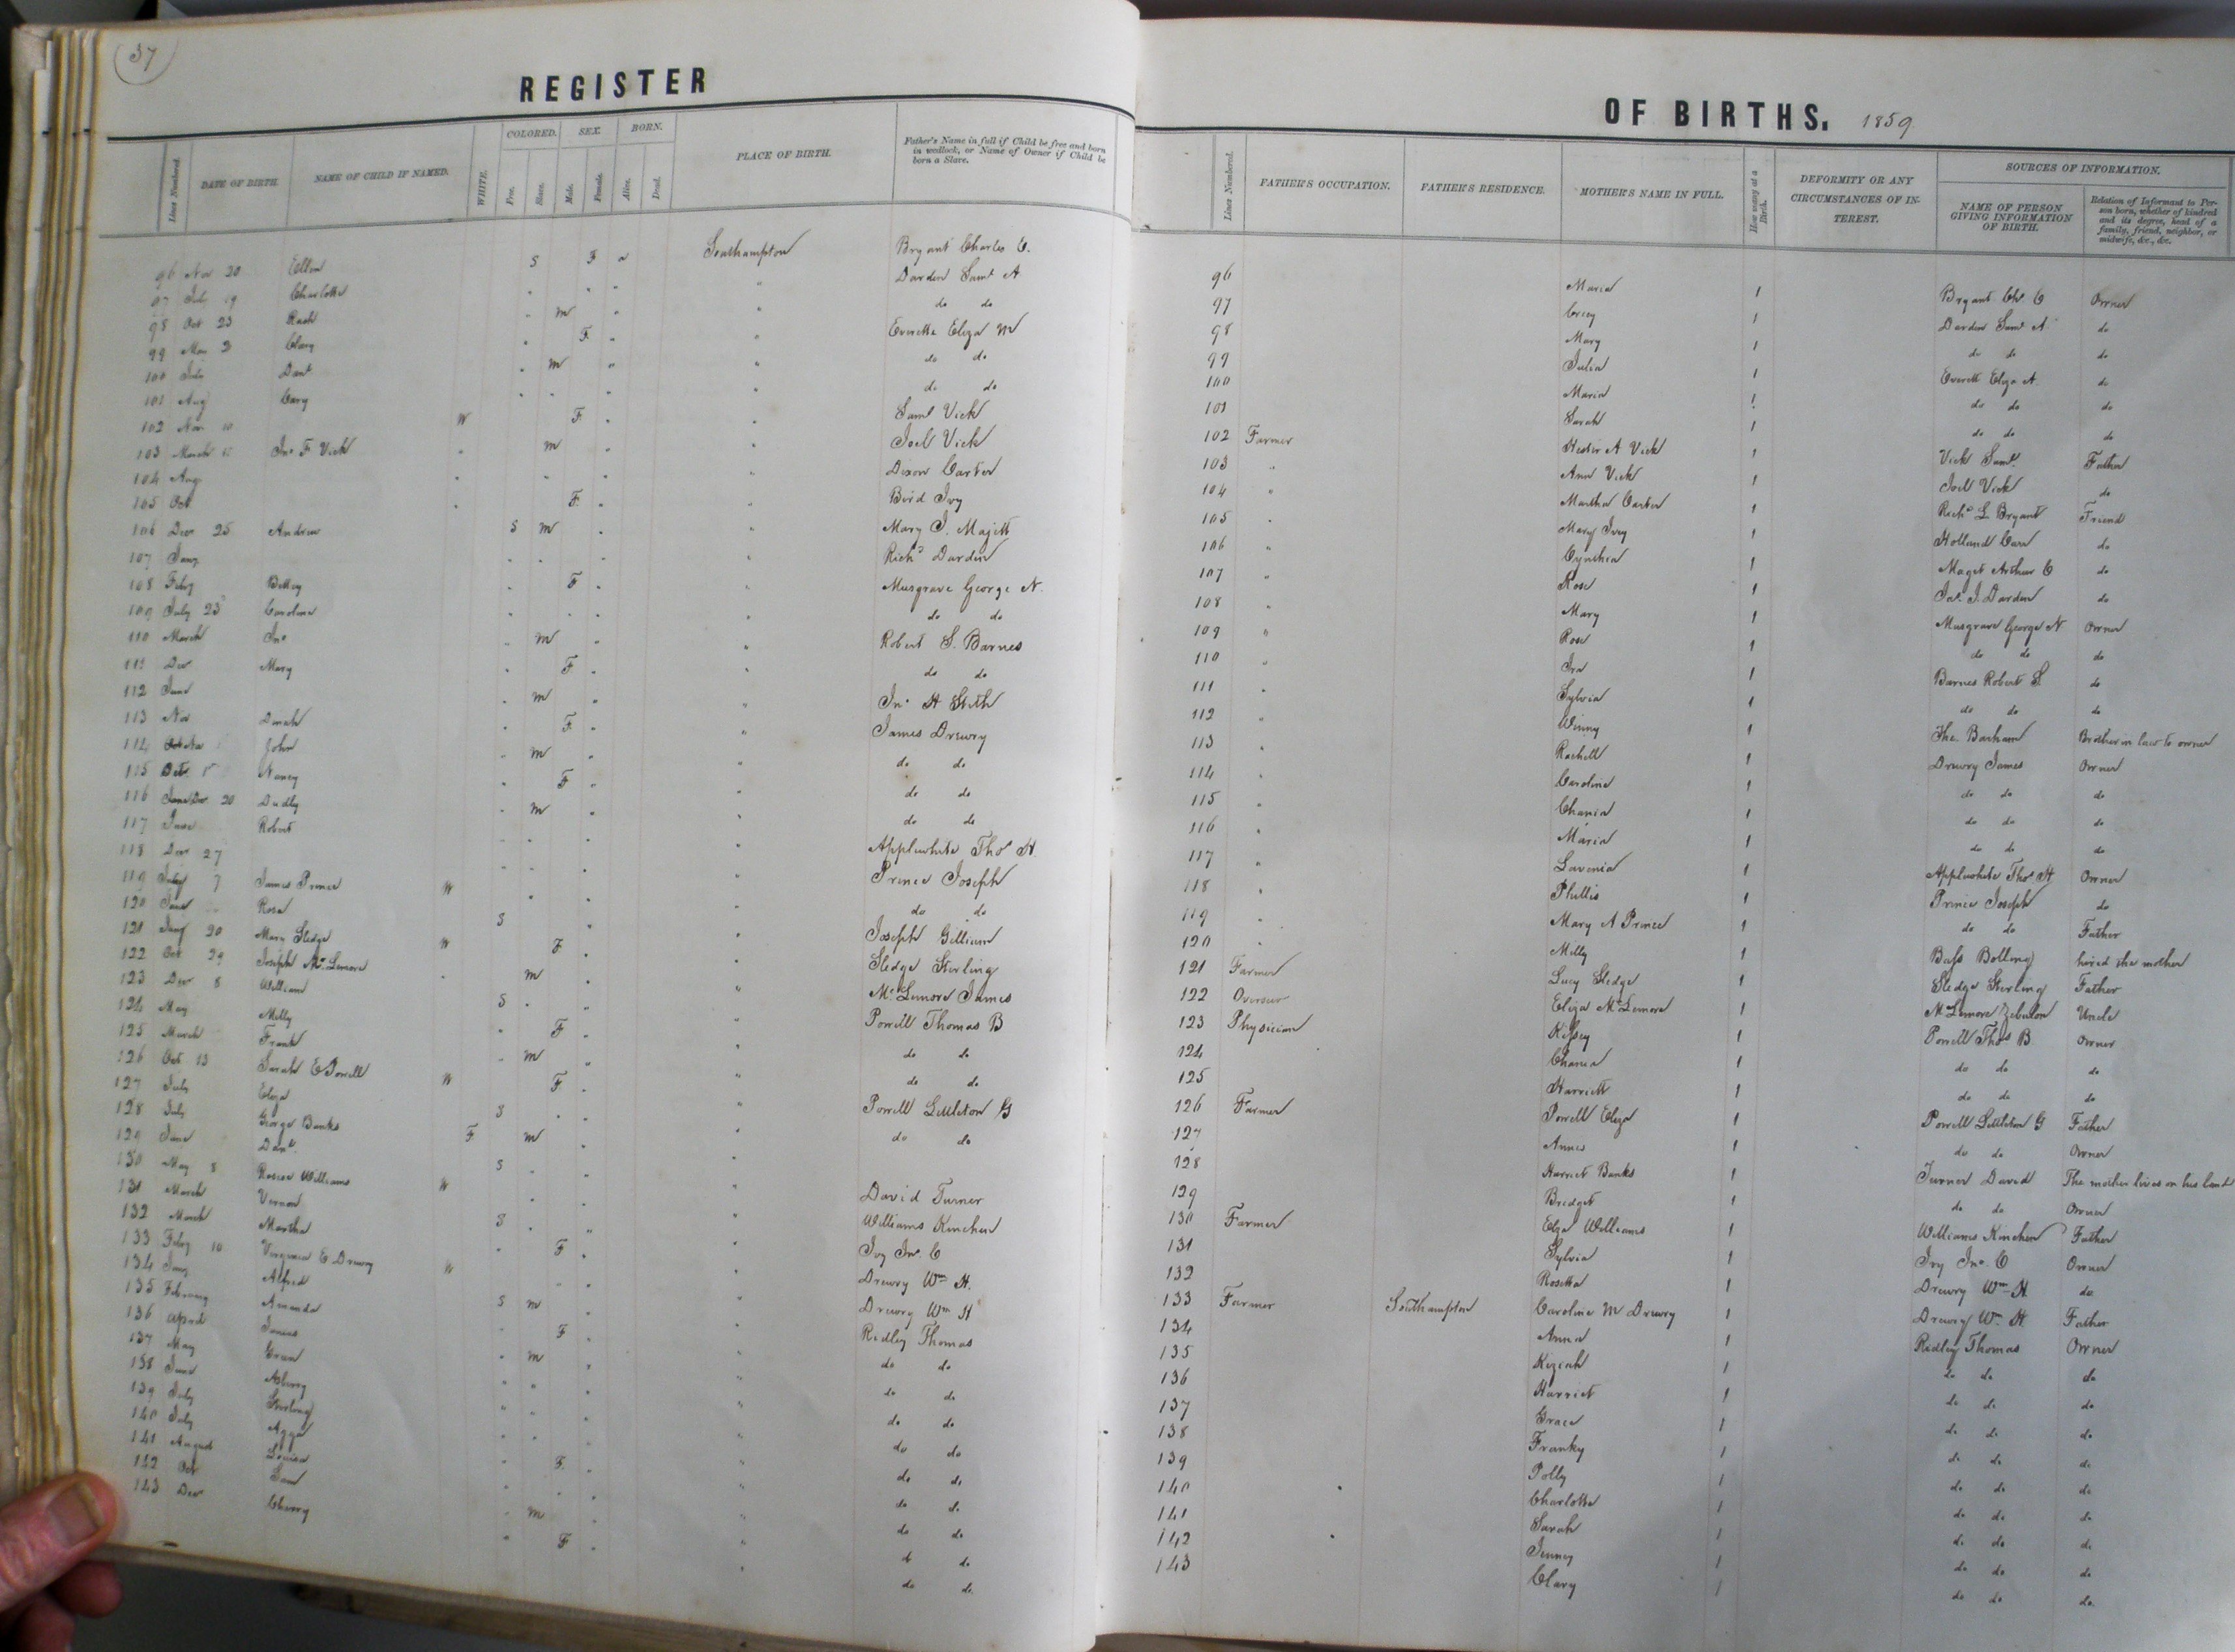 37
REGISTER
COLORED. SEX. BORN.
Lines Numbered. DATE OF BIRTH. NAME OF CHILD IF NAMED. WHITE. Free. Slave. Male. Female. Alive. Dead. PLACE OF BIRTH. Father's Name in full if Child be free and born in wedlock, or Name of Owner if Child be born a Slave.
96 Nov 20 Ellen S F " Southampton Bryant Charles C.
97 July 19 Charlotte " " " " Darden Saml A
98 Oct 23 " m " " do do
99 Mar 2 Clary " F " " Everette Eliza M
100 July Danl " m " " do do
101 Aug Cary " " " " do do
102 Nov 10 W F " " Saml Vick
103 March Jno F Vick " m " " Joel Vick
104 Aug " " " " Dixon Carter
105 Oct " F " " Bird Ivy
106 Dec 25 Andrew S m " " Mary J. Majett
107 Jany " " " " Richd Darden
108 Feby Betsy " F " " Musgrave George N.
109 July 23 Caroline " " " " do do
110 March Jno " m " " Robert S. Barnes
111 Dec Mary " F " " do do
112 June " m " " Jno H Stith
113 Nov Dinah " F " " James Drewry
114 John " m " " do do
115 Oct Nancy " F " " do do
116 Dec 20 Dudly " m " " do do
117 June Robert " " " " Applewhite Thos H.
118 Dec 27 " " " " Prince Joseph
119 July 7 James Prince W " " " do do
120 June Rosa S " " Joseph Gilliam
121 Jany 20 Mary Sledge W F " " Sledge Sterling
122 Oct 29 Joseph McLemore " m " " McLemore James
123 Dec 8 William S " " " Powell Thomas B
124 May Milly " F " " do do
125 March Frank " m " " do do
126 Oct 13 Sarah E Powell W F " " Powell Littleton G
127 July Eliza S " " " do do
128 July George Banks F m " "
129 June Danl. S " " " David Turner
130 May 8 Roscoe Williams W " " " Williams Kinchen
131 March Vernon S " " " Ivy Jno. C
132 March Martha " F " " Drewry Wm H.
133 Feby 10 Virginia E Drewry W " " " Drewry Wm H
134 Jany Alfred S m " " Ridley Thomas
135 February Amanda " F " " do do
136 April James " m " " do do
137 May Green " " " " do do
138 June Asberry " " " " do do
139 July Sterling " " " " do do
140 July Aggy " F " " do do
141 August Louisa " " " " do do
142 Oct Sam " m " " do do
143 Dec Cherry " F " " do do
OF BIRTHS. 1859
SOURCES OF INFORMATION.
Lines Numbered. FATHER'S OCCUPATION. FATHER'S RESIDENCE. MOTHER'S NAME IN FULL. How many at a Birth. DEFORMITY OR ANY CIRCUMSTANCES OF INTEREST. NAME OF PERSON GIVING INFORMATION OF BIRTH. Relation of Informant to Person born, whether of kindred and its degree, head of a family, friend, neighbor, or midwife, &c., &c.
96 Maria 1 Bryant Ch. C Owner
97 Creey 1 Darden Saml A do
98 Mary 1 do do do
99 Julia 1 Everett Eliza A. do
100 Maria 1 do do do
101 Sarah 1 do do do
102 Farmer Hester A Vick 1 Vick Saml. Father
103 " Ann Vick 1 Joel Vick do
104 " Martha Carter 1 Richd L Bryant Friend
105 " Mary Ivey 1 Holland Carr do
106 " Cynthia 1 Maget Arthur C do
107 " Rose 1 Jas. J. Darden do
108 " Mary 1 Musgrave George N Owner
109 " Rose 1 do do do
110 " Ira 1 Barnes Robert S. do
111 " Sylvia 1 do do do
112 " Winny 1 Barham Brother in law to owner
113 " Rachell 1 Drewry James Owner
114 " Caroline 1 do do do
115 " Chania 1 do do do
116 " Maria 1 do do do
117 " Lavenia 1 Applewhite Thos H Owner
118 " Phillis 1 Prince Joseph do
119 " Mary A Prince 1 do do Father
120 " Milly 1 Bass Bolling hired the mother
121 Farmer Lucy Sledge 1 Sledge Sterling Father
122 Overseer Eliza McLemore 1 McLemore Zebulon Uncle
123 Physician Kissey 1 Powell Thos B Owner
124 Chania 1 do do do
125 Harriett 1 do do do
126 Farmer Powell Eliza 1 Powell Littleton G Father
127 Annes 1 do do Owner
128 Harriet Banks 1 Turner David The mother lives on his land
129 Bridget 1 do do Owner
130 Farmer Elza Williams 1 Williams Kinchen Father
131 Sylvia 1 Ivy Jno. C Owner
132 Rosetta 1 Drewry Wm H. do
133 Farmer Southampton Caroline M Drewry 1 Drewry Wm H Father
134 Anna 1 Ridley Thomas Owner
135 Kiziah 1 do do do
136 Harriet 1 do do do
137 Grace 1 do do do
138 Franky 1 do do do
139 Polly 1 do do do
140 Charlotte 1 do do do
141 Sarah 1 do do do
142 Jenney 1 do do do
143 Clary 1 do do do.